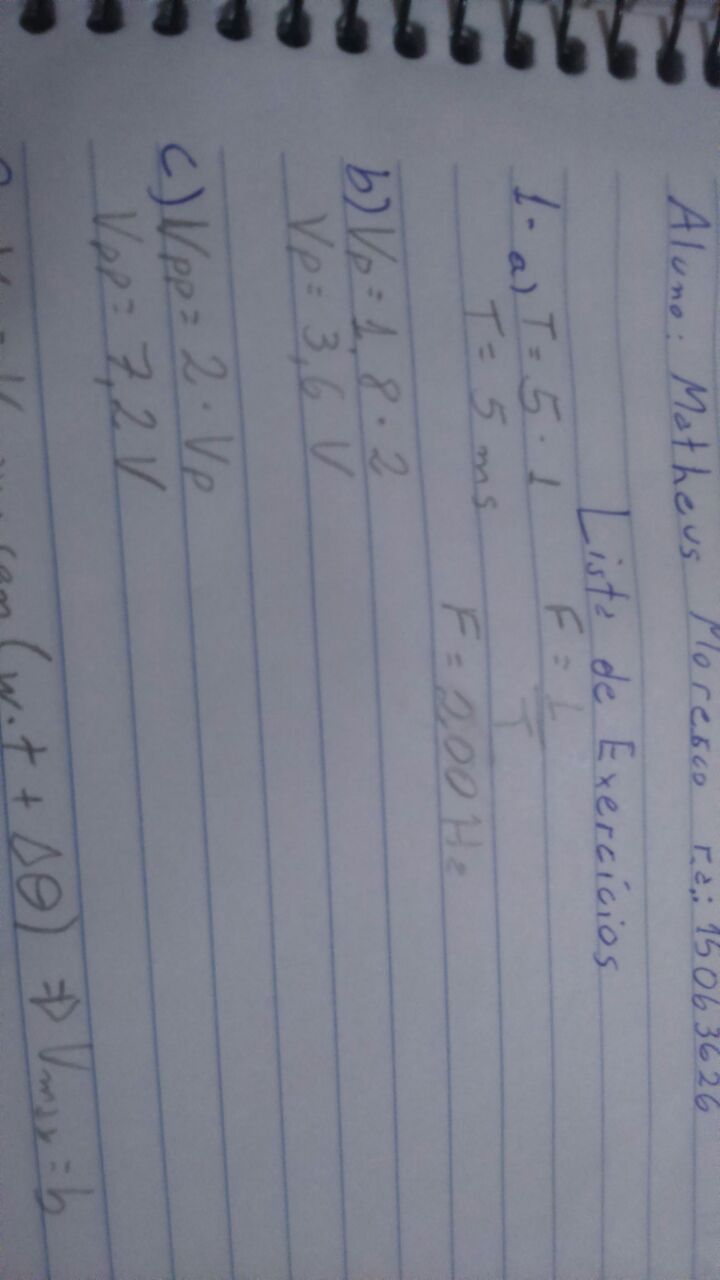 Aluno: Matheus Moresco r.a.: 15063626
Lista de Exercícios
1- a) T = 5 . 1 F = 1/T
T = 5 ms F = 0,00 Hz
b) Vp = 1,8 . 2
Vp = 3,6 V
c) Vpp = 2 . Vp
Vpp = 7,2 V
(w.t + Δθ) => Vmax =